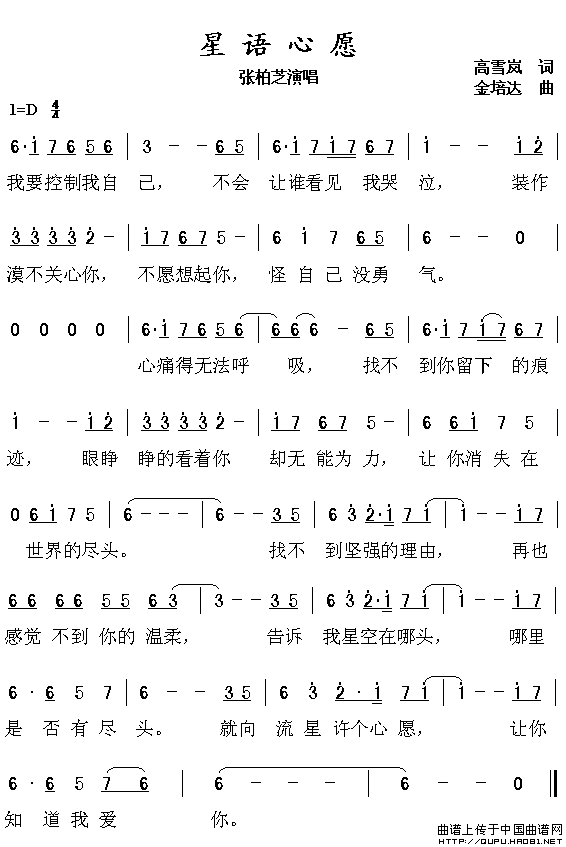 星语心愿
张柏芝演唱
高雪岚 词
金培达 曲
1=D 4/4
6·i 7 6 5 6 | 3 - - 6 5 | 6·i 7 i 7 6 7 | i - - i 2 |
我要控制我自 己， 不会 让谁看见 我哭 泣， 装作
3 3 3 3 2 - | i 7 6 7 5 - | 6 i 7 6 5 | 6 - - 0
漠不关心你， 不愿想起你， 怪 自 己 没勇 气。
0 0 0 0 | 6·i 7 6 5 6 | 6 6 6 - 6 5 | 6·i 7 i 7 6 7 |
心痛得无法呼 吸， 找不 到你留下 的痕
i - i 2 | 3 3 3 3 2 - | i 7 6 7 5 - | 6 6 i 7 5 |
迹， 眼睁 睁的看着你 却无 能为 力， 让 你消 失 在
0 6 i 7 5 | 6 - - - | 6 - - 3 5 | 6 3 2·i 7 i | i - - i 7 |
世界的尽头。 找不 到坚强的理由， 再也
6 6 6 6 5 5 6 3 | 3 - - 3 5 | 6 3 2·i 7 i | i - - i 7 |
感觉 不到 你的 温柔， 告诉 我星空在哪头， 哪里
6 · 6 5 7 | 6 - - 3 5 | 6 3 2 · i 7 i | i - - i 7 |
是 否 有 尽 头。 就向 流 星 许个心 愿， 让你
6 · 6 5 7 6 | 6 - - - | 6 - - 0 ‖
知 道 我 爱 你。
曲谱上传于中国曲谱网
HTTP://QUPU.HAO81.NET